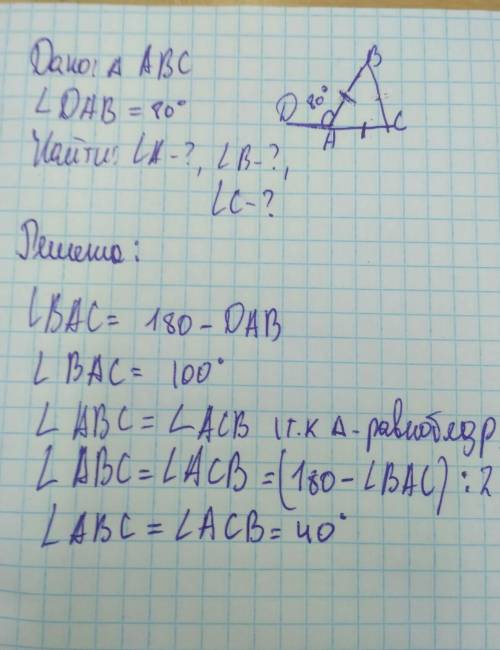 Дано: Δ ABC
∠DAB = 80°
Найти: ∠A-?, ∠B-?,
∠C-?
B
D 80°
A
C
Решено:
∠BAC = 180 - DAB
∠BAC = 100°
∠ABC = ∠ACB (т.к Δ-равнобедр
∠ABC = ∠ACB = (180 - ∠BAC) : 2
∠ABC = ∠ACB = 40°